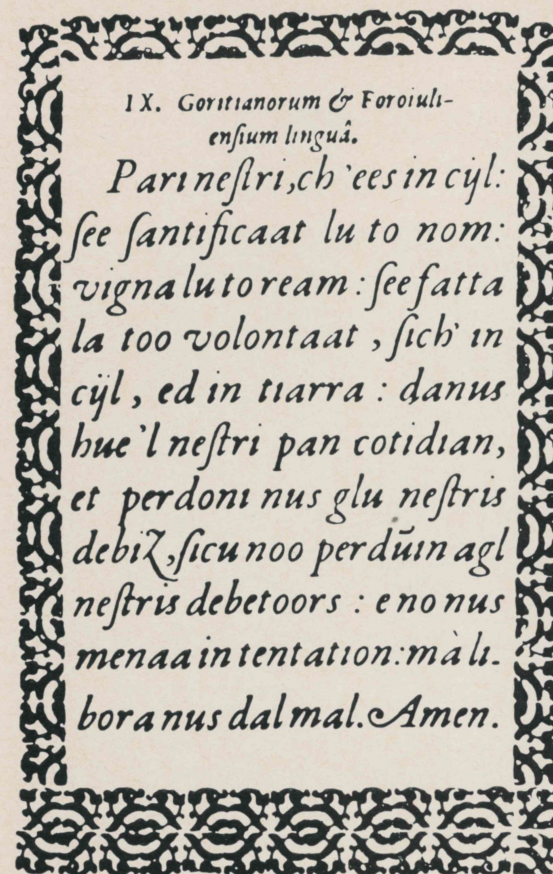 IX. Goritianorum & Foroiuli-
enſium linguâ.
Pari neſtri, ch'ees in cijl:
ſee ſantificaat lu to nom:
vigna lu to ream : ſee fatta
la too volontaat , ſich' in
cijl , ed in tiarra : danus
hue'l neſtri pan cotidian,
et perdoni nus glu neſtris
debiz, ſicu noo perdūin agl
neſtris debetoors : e no nus
menaa in tentation: mà li-
bora nus dal mal. Amen.